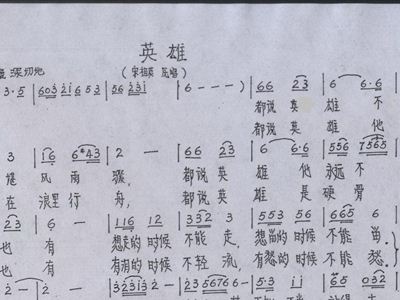 英雄
深切地
(宋祖英 演唱)
3·5 | 603 2i 6 5 3 | 56 i23i | 6 - - - ) | 66 23 | 6 6·6
都说 英 雄 不
都说 英 雄 他
3 | i6 6 43 | 2 - | 66 23 | 6 6·6 | 556 7565
尴 风 雨 骤, 都说 英 雄 他 永远 不
在 浪里 行 舟, 都说 英 雄 是 硬 骨
23 | 6 - | 116 12 | 332 3 | 553 56 | 665 6
也 有 想走的 时候 不能 走, 想留的 时候 不能 留。
也 有 有泪的 时候 不轻 流, 有愁的 时候 不能 愁。
2 - | 2 - | 323i2 3 | 23 5676 6 - | 5·3 ii | 65 032